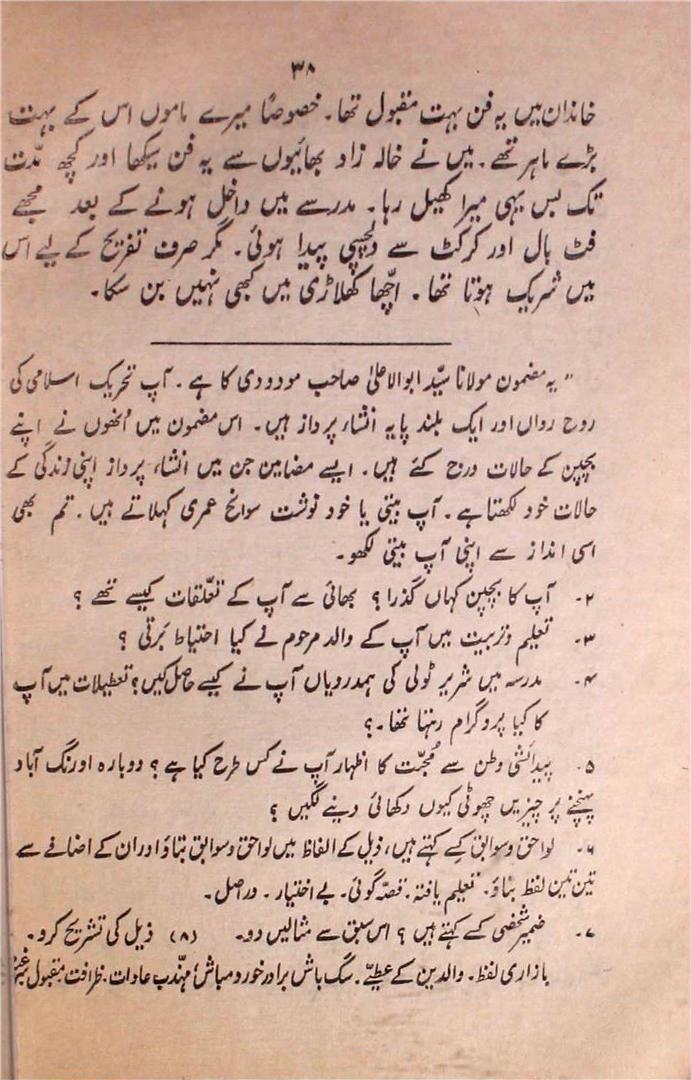 ۳۸
خاندان میں یہ فن بہت مقبول تھا۔ خصوصاً میرے ماموں اس کے بہت
بڑے ماہر تھے۔ میں نے خالہ زاد بھائیوں سے یہ فن سیکھا اور کچھ مدّت
تک بس یہی میرا کھیل رہا۔ مدرسے میں داخل ہونے کے بعد مجھے
فٹ بال اور کرکٹ سے دلچسپی پیدا ہوئی۔ مگر صرف تفریح کے لیے اس
میں شریک ہوتا تھا۔ اچّھا کھلاڑی میں کبھی نہیں بن سکا۔
" یہ مضمون مولانا سیّد ابوالاعلیٰ صاحب مودودی کا ہے۔ آپ تحریک اسلامی کی
روح رواں اور ایک بلند پایہ انشاء پرداز ہیں۔ اس مضمون میں اُنھوں نے اپنے
بچپن کے حالات درج کئے ہیں۔ ایسے مضامین جن میں انشاء پرداز اپنی زندگی کے
حالات خود لکھتا ہے۔ آپ بیتی یا خود نوشت سوانح عمری کہلاتے ہیں۔ تم بھی
اسی انداز سے اپنی آپ بیتی لکھو۔
۲۔ آپ کا بچپن کہاں گذرا؟ بھائی سے آپ کے تعلّقات کیسے تھے؟
۳۔ تعلیم وتربیت میں آپ کے والد مرحوم نے کیا احتیاط بَرتی؟
۴۔ مدرسہ میں شریر ٹولی کی ہمدردیاں آپ نے کیسے حاصل کیں؟ تعطیلات میں آپ
کا کیا پروگرام رہتا تھا۔؟
۵۔ پیدائشی وطن سے مُحبّت کا اظہار آپ نے کس طرح کیا ہے؟ دوبارہ اورنگ آباد
پہنچنے پر چیزیں چھوٹی کیوں دکھائی دینے لگیں؟
۶۔ لواحق وسوابق کسے کہتے ہیں، ذیل کے الفاظ میں لواحق وسوابق بتاؤ اور ان کے اضافے سے
تین تین لفظ بناؤ۔ تعلیم یافتہ۔ قصّہ گوئی۔ بے اختیار۔ دراصل۔
۷۔ ضمیر شخصی کسے کہتے ہیں؟ اس سبق سے مثالیں دو۔ (۸) ذیل کی تشریح کرو۔
بازاری لفظ۔ والدین کے عطیّے۔ سگ باش برادر خورد مباش؛ مہذّب عادات۔ ظرافت مقبول